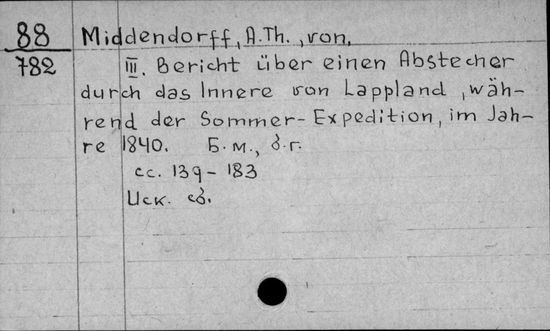 88
782
Middendorff, A.Th., von,
III. Bericht über einen Abstecher
durch das Innere von Lappland, wäh-
rend der Sommer-Expedition, im Jah-
re 1840. Б.м., б.г.
сс. 139-183
Иск. сб.